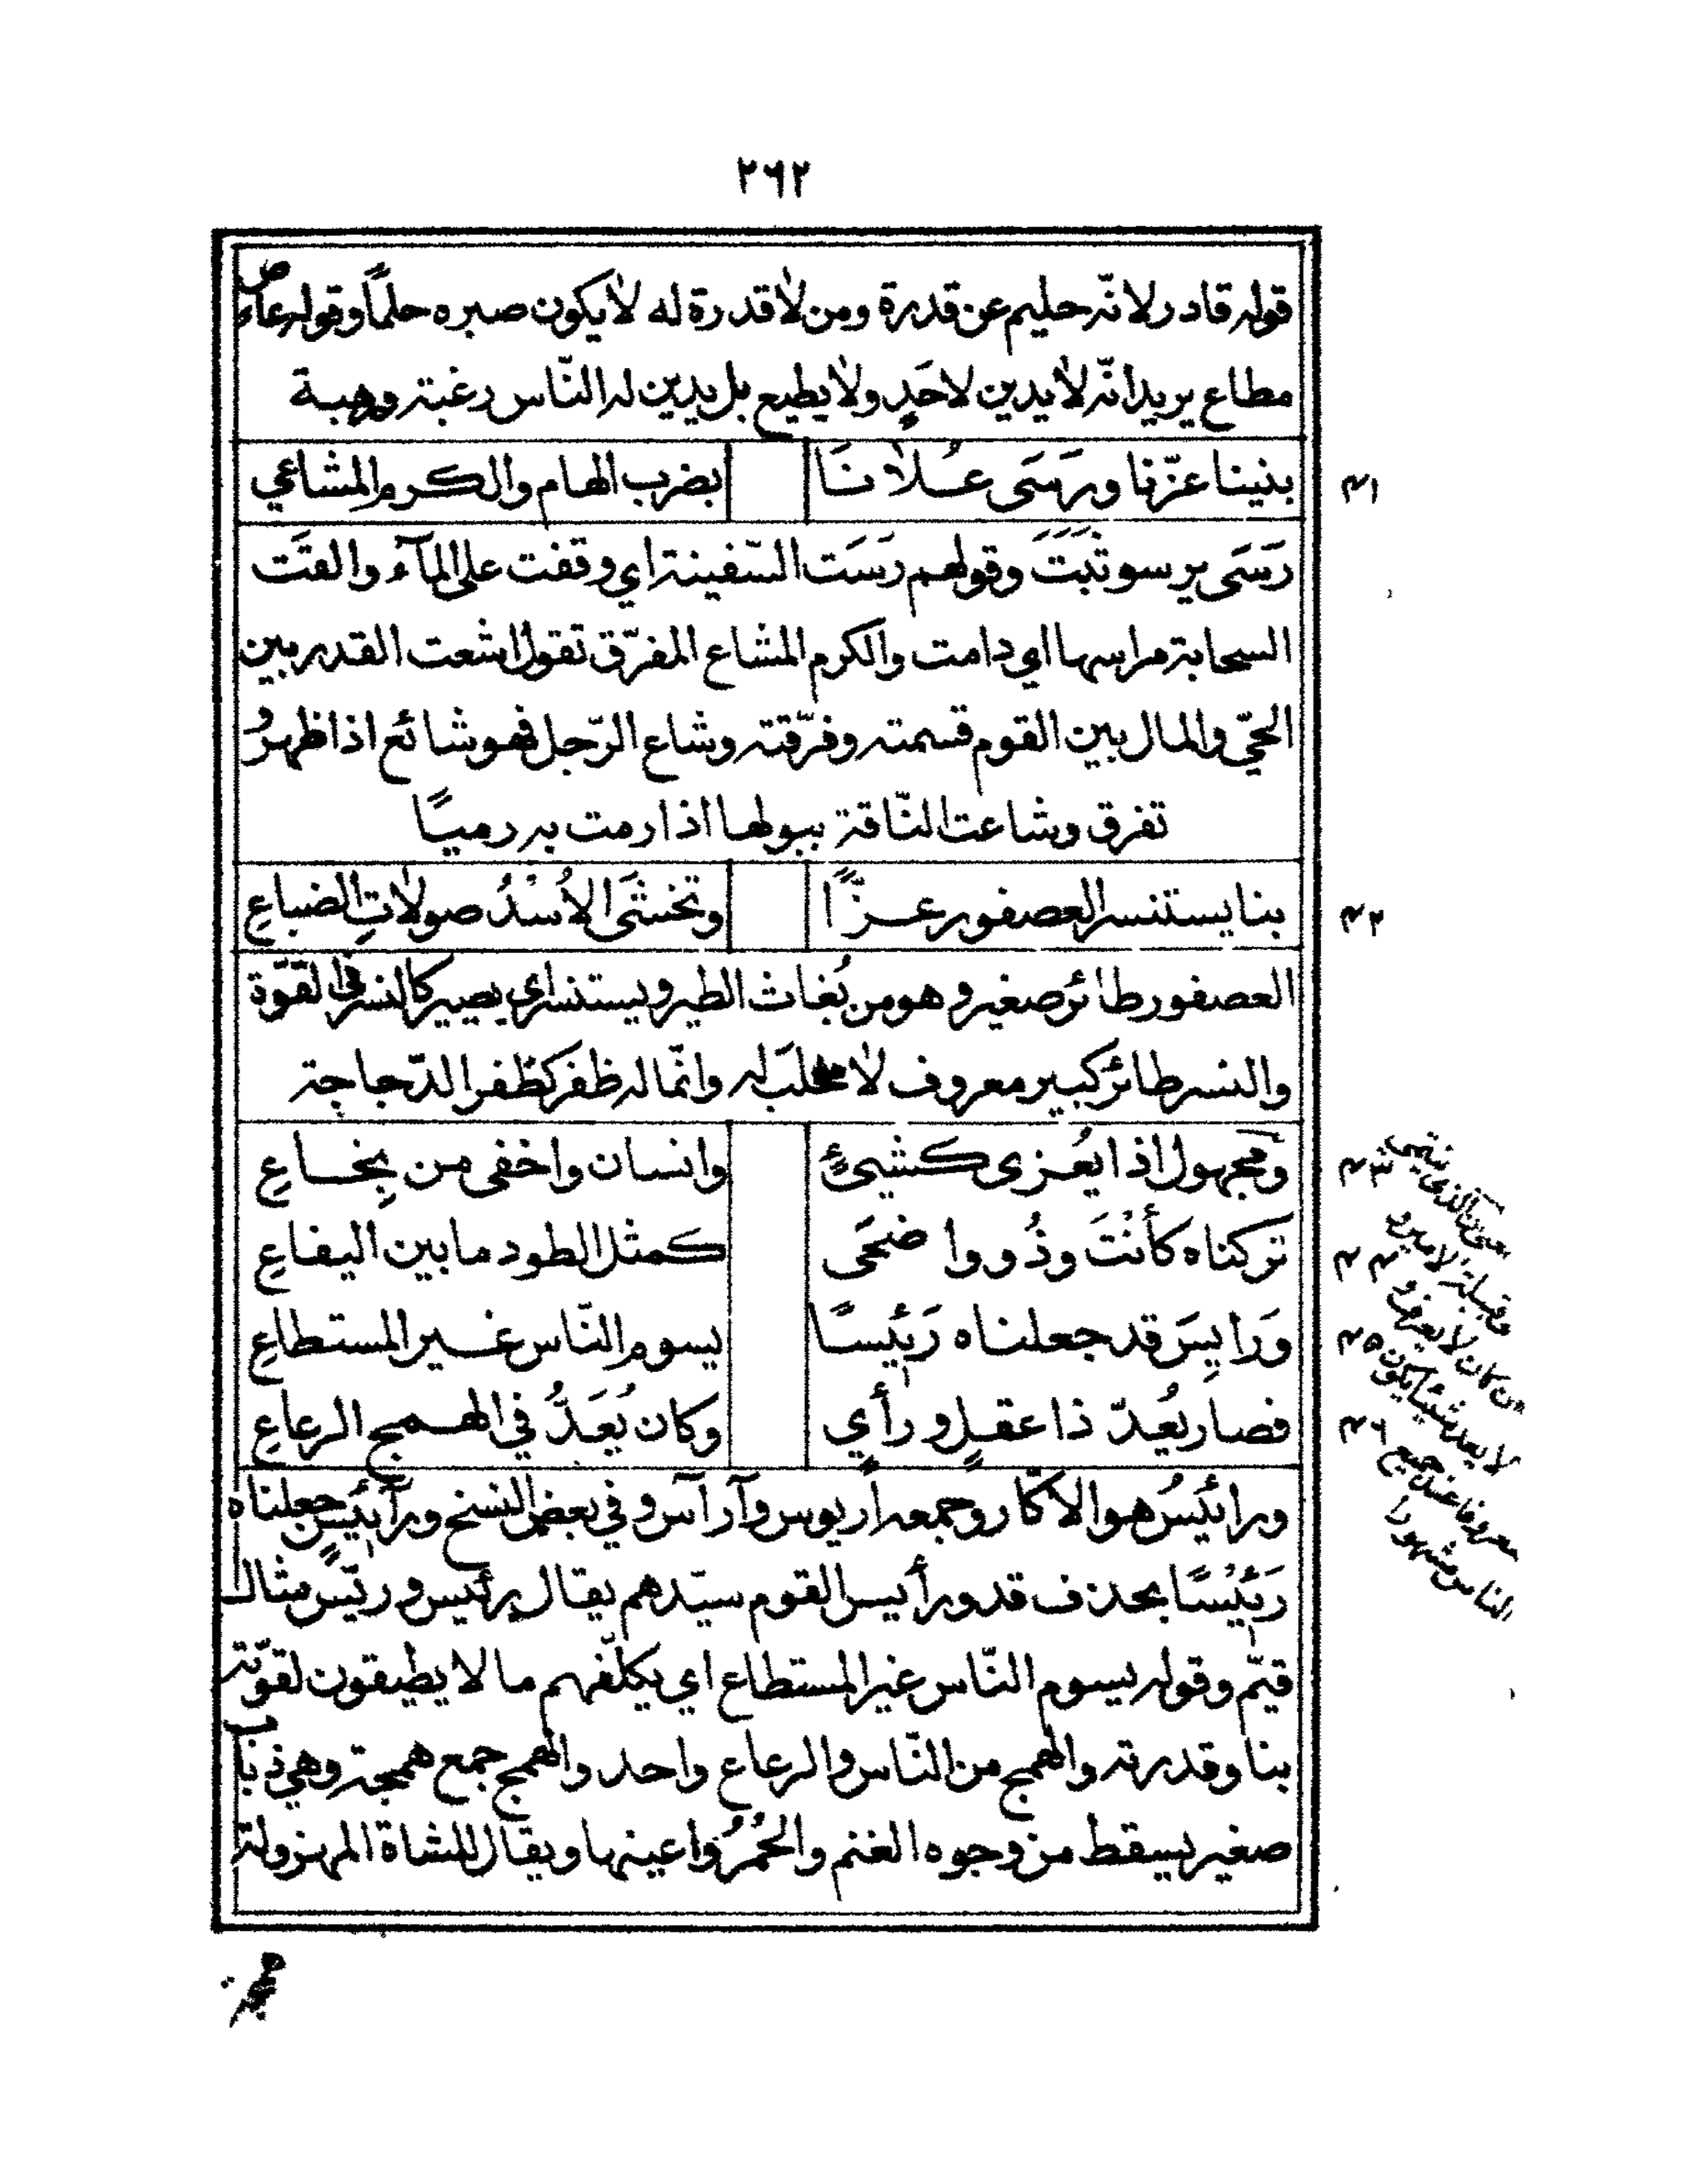 ٢٦٢
قوله قادر لانّه حليم عن قدرة ومن لا قدرة له لا يكون صبره حلمًا وقوله عاص
مطاع يريد انّه لا يدين لاحَدٍ ولا يطيع بل يدين له النّاس رغبة ورهبة
بنينا عزّنا ورَسَى عُلانَا بضرب الهام والكرم المشاعي ٤١
رَسَى يرسو ثَبَتَ وقولهم رَسَت السّفينة اي وقفت على المآء والقَت
السحابة مراسيها اي دامت والكرم المشاع المفرّق تقول اشعت القدر بين
الحيّ والمال بين القوم قسمته وفرّقته وشاع الرّجل فهو شائع اذا ظهر و
تفرق وشاعت النّاقة ببولها اذا رمت به رميًا
بنا يستنسر العصفور عزًّا وتخشَى الاُسْدُ صولاتِ الضباعِ ٤٢
العصفور طائر صغير وهو من بُغاث الطير ويستنسر اي يصير كالنسر في القوّة
والنسر طائر كبير معروف لا مخلب له وانّما له ظفر كظفر الدّجاجة
ومجهول اذا يُعزى كشيئٍ وانسان واخفى من بِخاعِ ٤٣
تركناه كأنْتَ وذُووا ضحَى كمثل الطود ما بين اليفاعِ ٤٤
وَرايِسَ قد جعلناه رَئيسًا يسوم النّاس غير المستطاعِ ٤٥
فصار يُعدّ ذا عقلٍ ورأيٍ وكان يُعَدُّ في الهمج الرعاعِ ٤٦
ورائيسُ هو الاكّار وجمعه أريوس وآرآس وفي بعض النسخ ورآئيسٍ جعلناه
رَئيْسًا بحذف قد ورأيس القوم سيّدهم يقال رئيس وريّس مثال
قيّم وقوله يسوم النّاس غير المستطاع اي يكلّفهم ما لا يطيقون لقوّته
بنا وقدرته والهمج من النّاس والرعاع واحد والهمج جمع همجة وهي ذباب
صغير يسقط من وجوه الغنم والحُمُر واعينها ويقال للشاة المهزولة
وقبيلة لا
من كان لا يعرف و
لا يعد شيئا يكون
معروفا عند جميع
الناس مشهورا